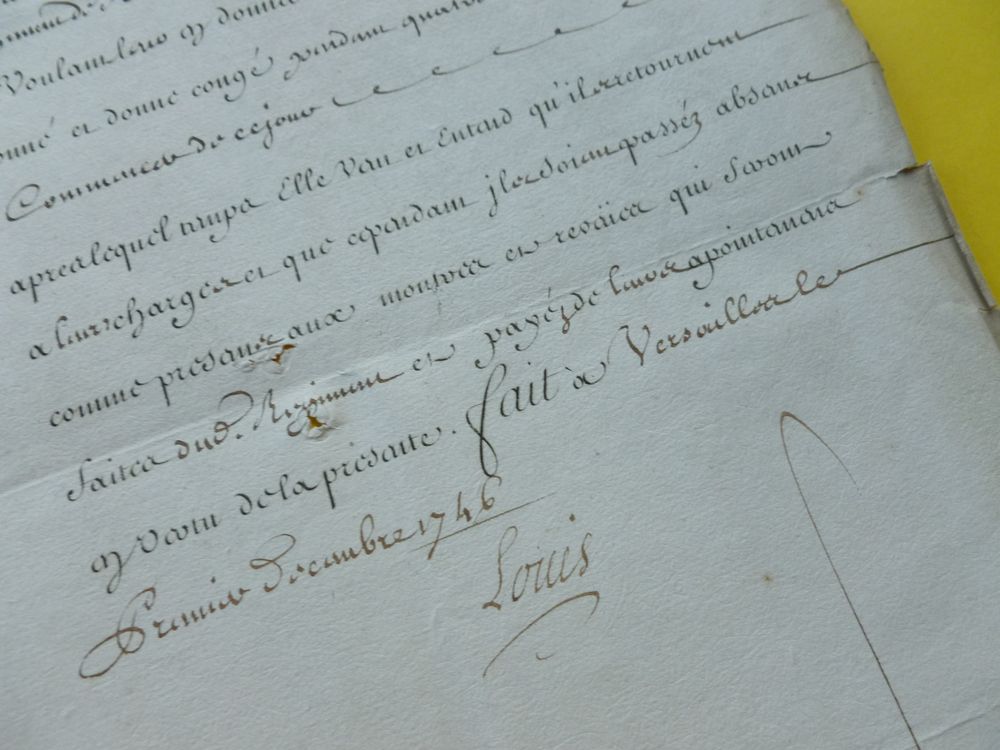 Voulant leur y donner
donné et donne congé pendant quatre
Commencer de ce jour
apres lequel temps Elle Veut et Entend qu'ils retournent
a leur charge et que cependant ils soient passéz absens
comme presens aux montres et reveües qui seront
faites dud. Regiment et payéz de leurs apointemens
en vertu de la présente. fait à Versailles le
Premier décembre 1746
Louis